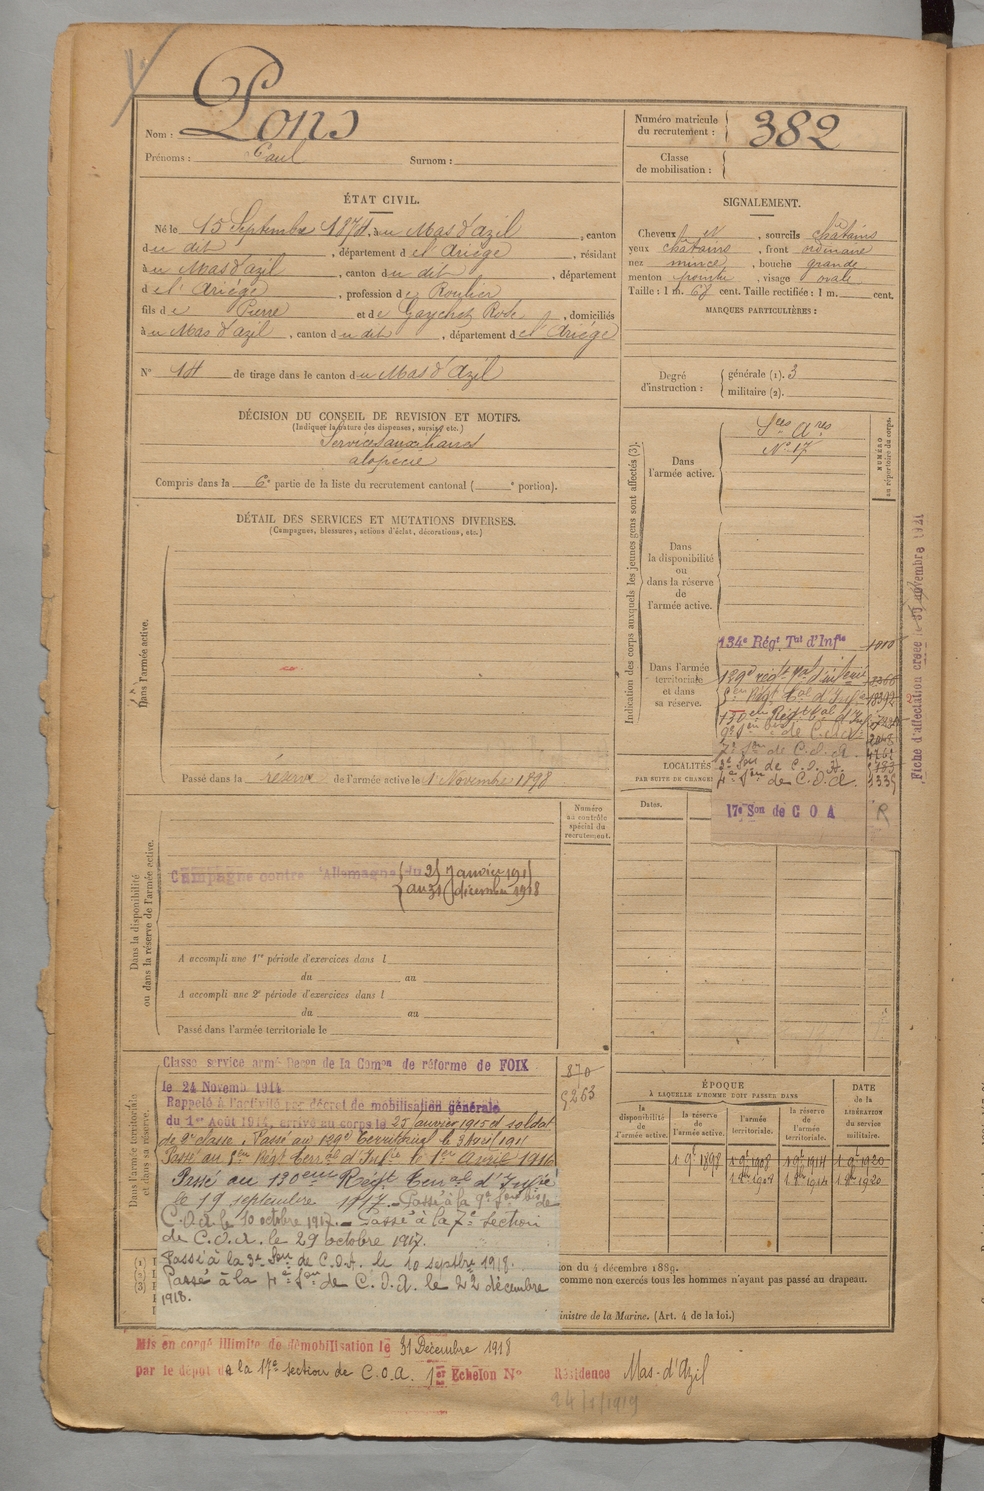 Nom : Pons
Prénoms : Paul Surnom :
Numéro matricule
du recrutement : 382
Classe
de mobilisation :
ÉTAT CIVIL.
Né le 15 Septembre 1874, à u Mas d'azil, canton
d u dit, département d e l'Ariège, résidant
à u Mas d'azil, canton d u dit, département
d e l'Ariège, profession d e Roulier
fils d e Pierre et d e Rose, domiciliés
à u Mas d'azil, canton d u dit, département d e l'Ariège
N° 14 de tirage dans le canton d u Mas d'Azil
SIGNALEMENT.
Cheveux N, sourcils châtains
yeux châtains, front ordinaire
nez mince, bouche grande
menton pointu, visage ovale
Taille : 1 m. 67 cent. Taille rectifiée : 1 m. cent.
MARQUES PARTICULIÈRES :
Degré
d'instruction :
générale (1). 3
militaire (2).
DÉCISION DU CONSEIL DE REVISION ET MOTIFS.
(Indiquer la nature des dispenses, sursis, etc.)
Services auxiliaires
alopécie
Compris dans la 6e partie de la liste du recrutement cantonal ( e portion).
DÉTAIL DES SERVICES ET MUTATIONS DIVERSES.
(Campagnes, blessures, actions d'éclat, décorations, etc.)
Dans l'armée active.
Passé dans la réserve de l'armée active le 1 Novembre 1898
Indication des corps auxquels les jeunes gens sont affectés (3).
NUMÉRO
au répertoire du corps.
Dans
l'armée active.
Sces Ares
N° 17
Dans
la disponibilité
ou
dans la réserve
de
l'armée active.
Dans l'armée
territoriale
et dans
sa réserve.
134e Régt Tal d'Infie
129e régt
130eme Régt Tal d'Inf
7e Son de C.O.A.
3e Son de C.O.A.
4e Son de C.O.A.
17e Son de C O A
R
Fiche d'affectation créée le 30 novembre 1921
LOCALITÉS
PAR SUITE DE CHANGE
Dates.
Numéro
au contrôle
spécial du
recrutement.
Dans la disponibilité
ou dans la réserve de l'armée active.
Campagne contre l'Allemagne du 25 Janvier 1915
au 31 décembre 1918
A accompli une 1re période d'exercices dans l
du au
A accompli une 2e période d'exercices dans l
du au
Passé dans l'armée territoriale le
Dans l'armée territoriale
et dans sa réserve.
Classé service armé Decon de la Comon de réforme de FOIX
le 24 Novemb 1914
Rappelé à l'activité par décret de mobilisation générale
du 1er Août 1914, arrivé au corps le 25 janvier 1915 et soldat
de 2e classe. Passé au 129e Territorial le
Passé au Régt Terral d'Infie le 1er Avril 1916
Passé au 130eme Régt Terral d'Infie
le 19 septembre 1917. Passé à la 9e Son bis de
C.O.A. le 10 octobre 1917. Passé à la 7e section
de C.O.A. le 29 octobre 1917.
Passé à la 3e Son de C.O.A. le 10 septbre 1918.
Passé à la 4e Son de C.O.A. le 22 décembre
1918.
870
5263
ÉPOQUE
À LAQUELLE L'HOMME DOIT PASSER DANS
la disponibilité de l'armée active.
la réserve de l'armée active.
l'armée territoriale.
la réserve de l'armée territoriale.
DATE
de la
LIBÉRATION
du service
militaire.
1 9e 1898
ion du 4 décembre 1889.
comme non exercés tous les hommes n'ayant pas passé au drapeau.
inistre de la Marine. (Art. 4 de la loi.)
Mis en congé illimité de démobilisation le 31 Décembre 1918
par le dépôt de la 17e section de C.O.A. 1er Echelon N° Résidence Mas-d'Azil
24/1/1919